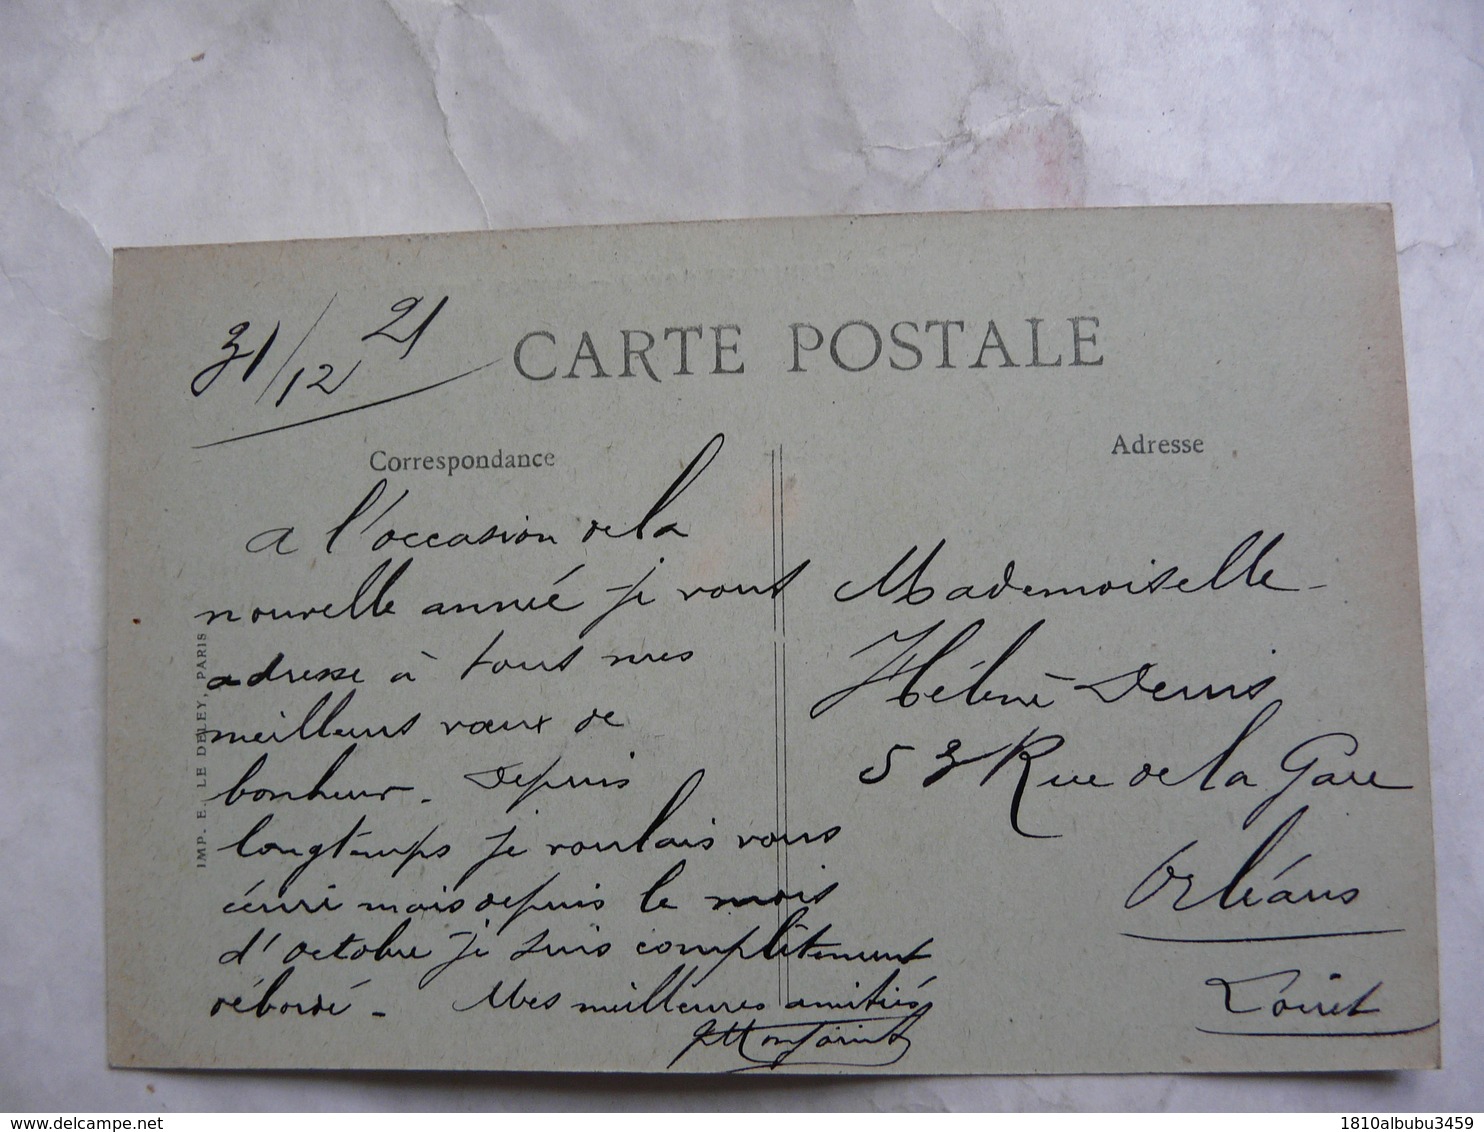 31/12 21
CARTE POSTALE
Correspondance
Adresse
a l'occasion de la
nouvelle année je vous
adresse à tous mes
meilleurs vœux de
bonheur. Depuis
longtemps je voulais vous
écrire mais depuis le mois
d'octobre je suis complètement
débordé - Mes meilleures amitiés
Mademoiselle
Hélène Denis
53 Rue de la Gare
Orléans
Loiret
IMP. E. LE DELEY, PARIS
1810albubu3459